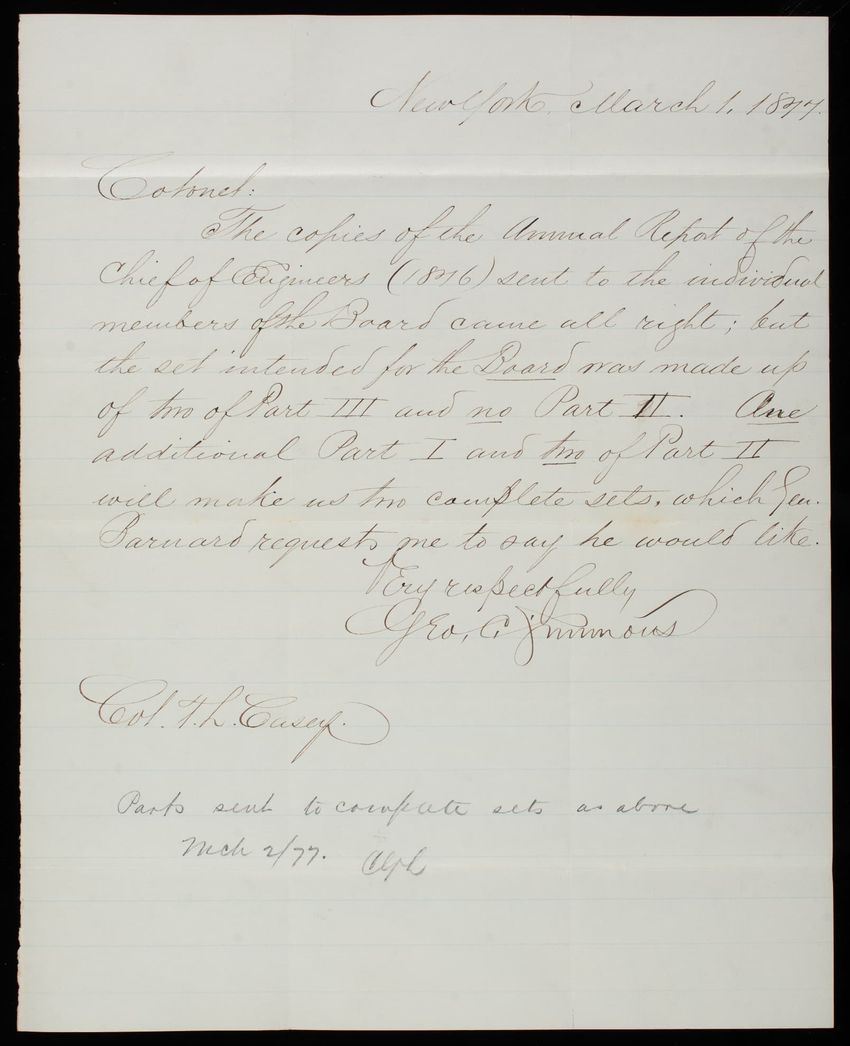 New York, March 1, 1877.
Colonel:
The copies of the Annual Report of the
Chief of Engineers (1876) sent to the individual
members of the Board came all right; but
the set intended for the Board was made up
of two of Part III and no Part II. One
additional Part I and two of Part II
will make us two complete sets, which Gen.
Barnard requests me to say he would like.
Very respectfully
Geo. C.
Col. T. L. Casey.
Parts sent to complete sets as above
Mch 2/77.